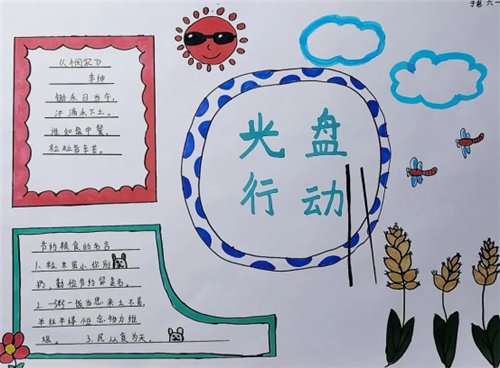 《悯农》
李绅
锄禾日当午,
汗滴禾下土。
谁知盘中餐,
粒粒皆辛苦。
光盘
行动
节约粮食的名言
1、粒米虽小你别
扔,勤俭节约留美
2.一粥一饭当思来之不易,
半丝半缕恒念物力维
艰。 3.民以食为天。